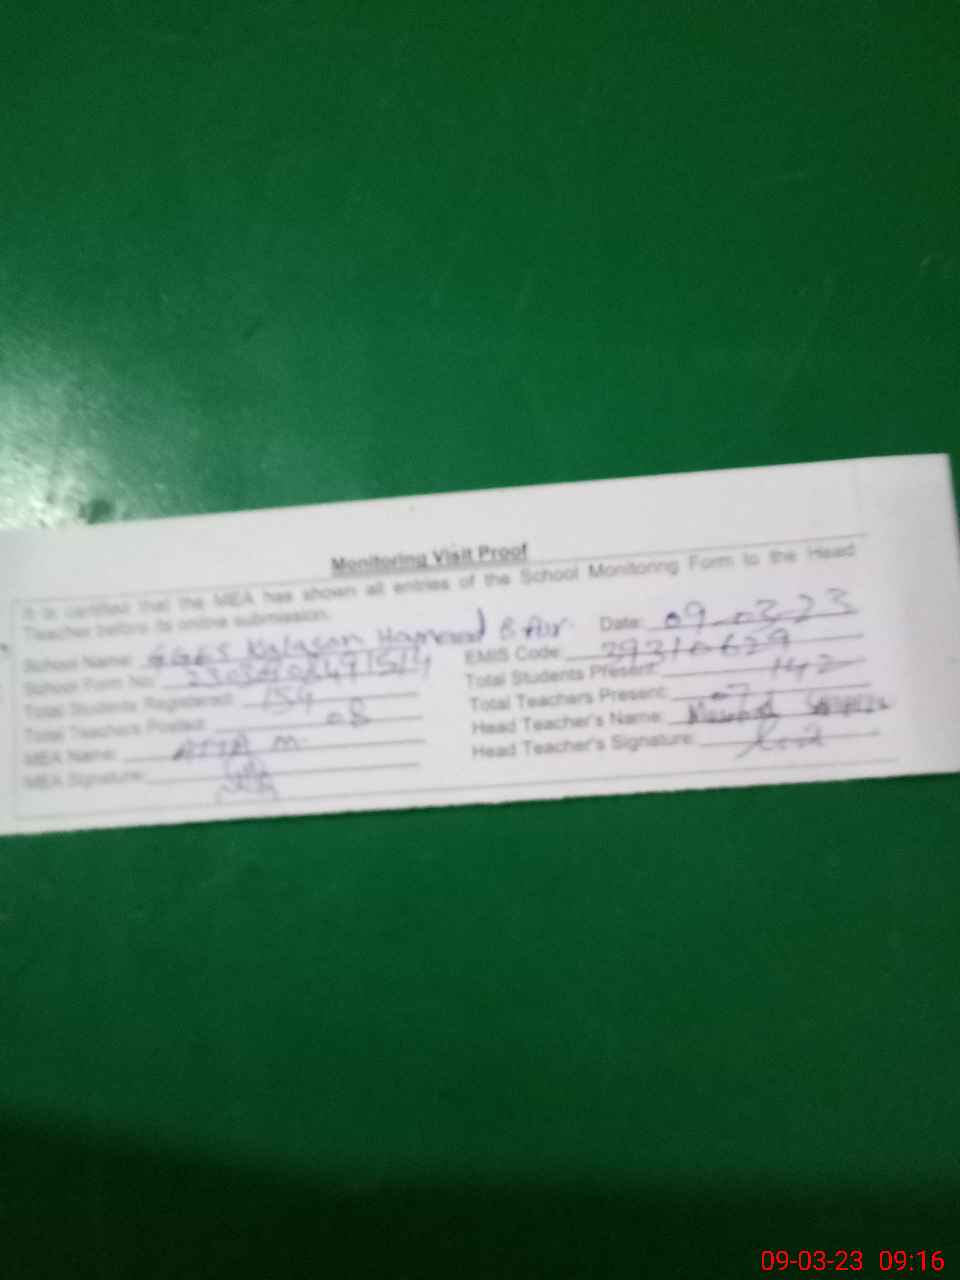 Monitoring Visit Proof
It is certified that the MEA has shown all entries of the School Monitoring Form to the Head
Teacher before its online submission.
School Name: GGES Kalasan Date: 09-03-23
School Form No: EMIS Code:
Total Students Registered: 154 Total Students Present: 142
Total Teachers Posted: 08 Total Teachers Present: 07
MEA Name: Head Teacher's Name:
MEA Signature: Head Teacher's Signature:
09-03-23 09:16